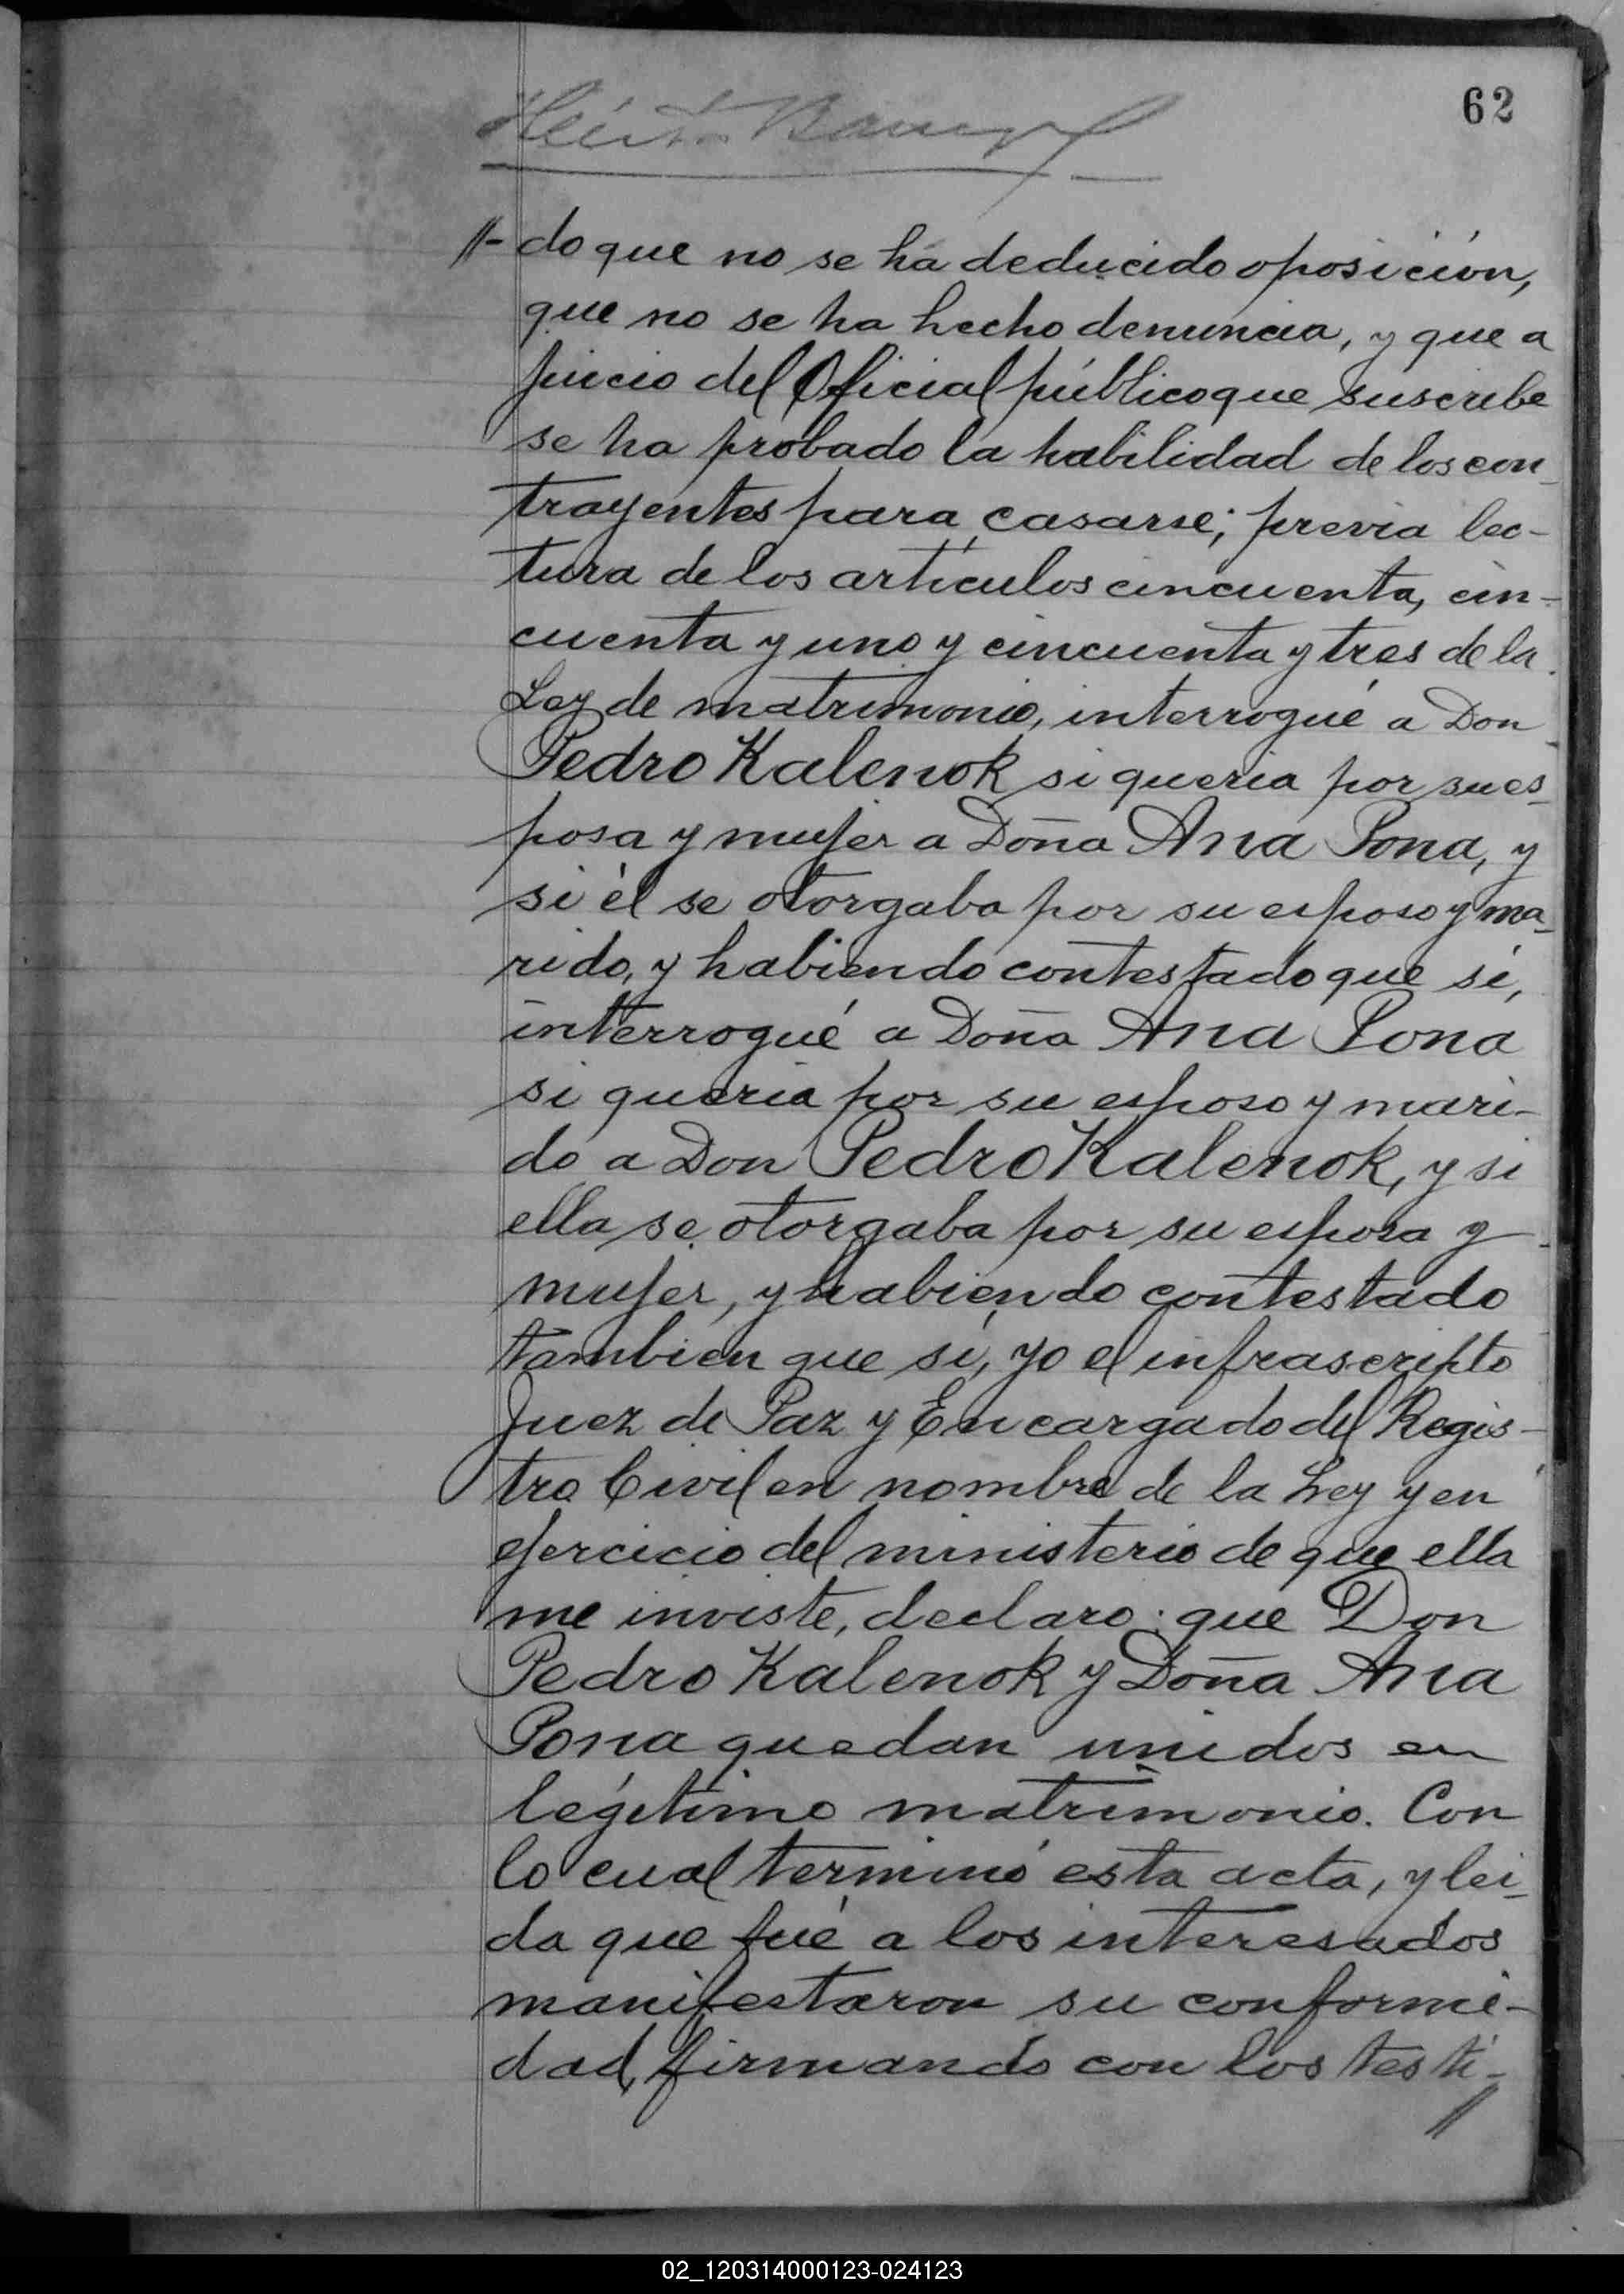 62
//- do que no se ha deducido oposición,
que no se ha hecho denuncia, y que a
juicio del Oficial público que suscribe
se ha probado la habilidad de los con_
trayentes para casarse; previa lec-
tura de los artículos cincuenta, cin-
cuenta y uno y cincuenta y tres de la
Ley de matrimonio, interrogué a Don
Pedro Kalenok si queria por su es_
posa y mujer a Doña Ana Pona, y
si él se otorgaba por su esposo y ma_
rido, y habiendo contestado que si,
interrogué a Doña Ana Pona
si queria por su esposo y mari-
do a Don Pedro Kalenok, y si
ella se otorgaba por su esposa y
mujer, y habiendo contestado
tambien que si, yo el infrascripto
Juez de Paz y Encargado del Regis-
tro Civil en nombre de la Ley y en
ejercicio del ministerio de que ella
me inviste, declaro: que Don
Pedro Kalenok y Doña Ana
Pona quedan unidos en
legítimo matrimonio. Con
lo cual terminó esta acta, y lei_
da que fué a los interesados
manifestaron su conformi-
dad, firmando con los testi-
//
02_120314000123-024123